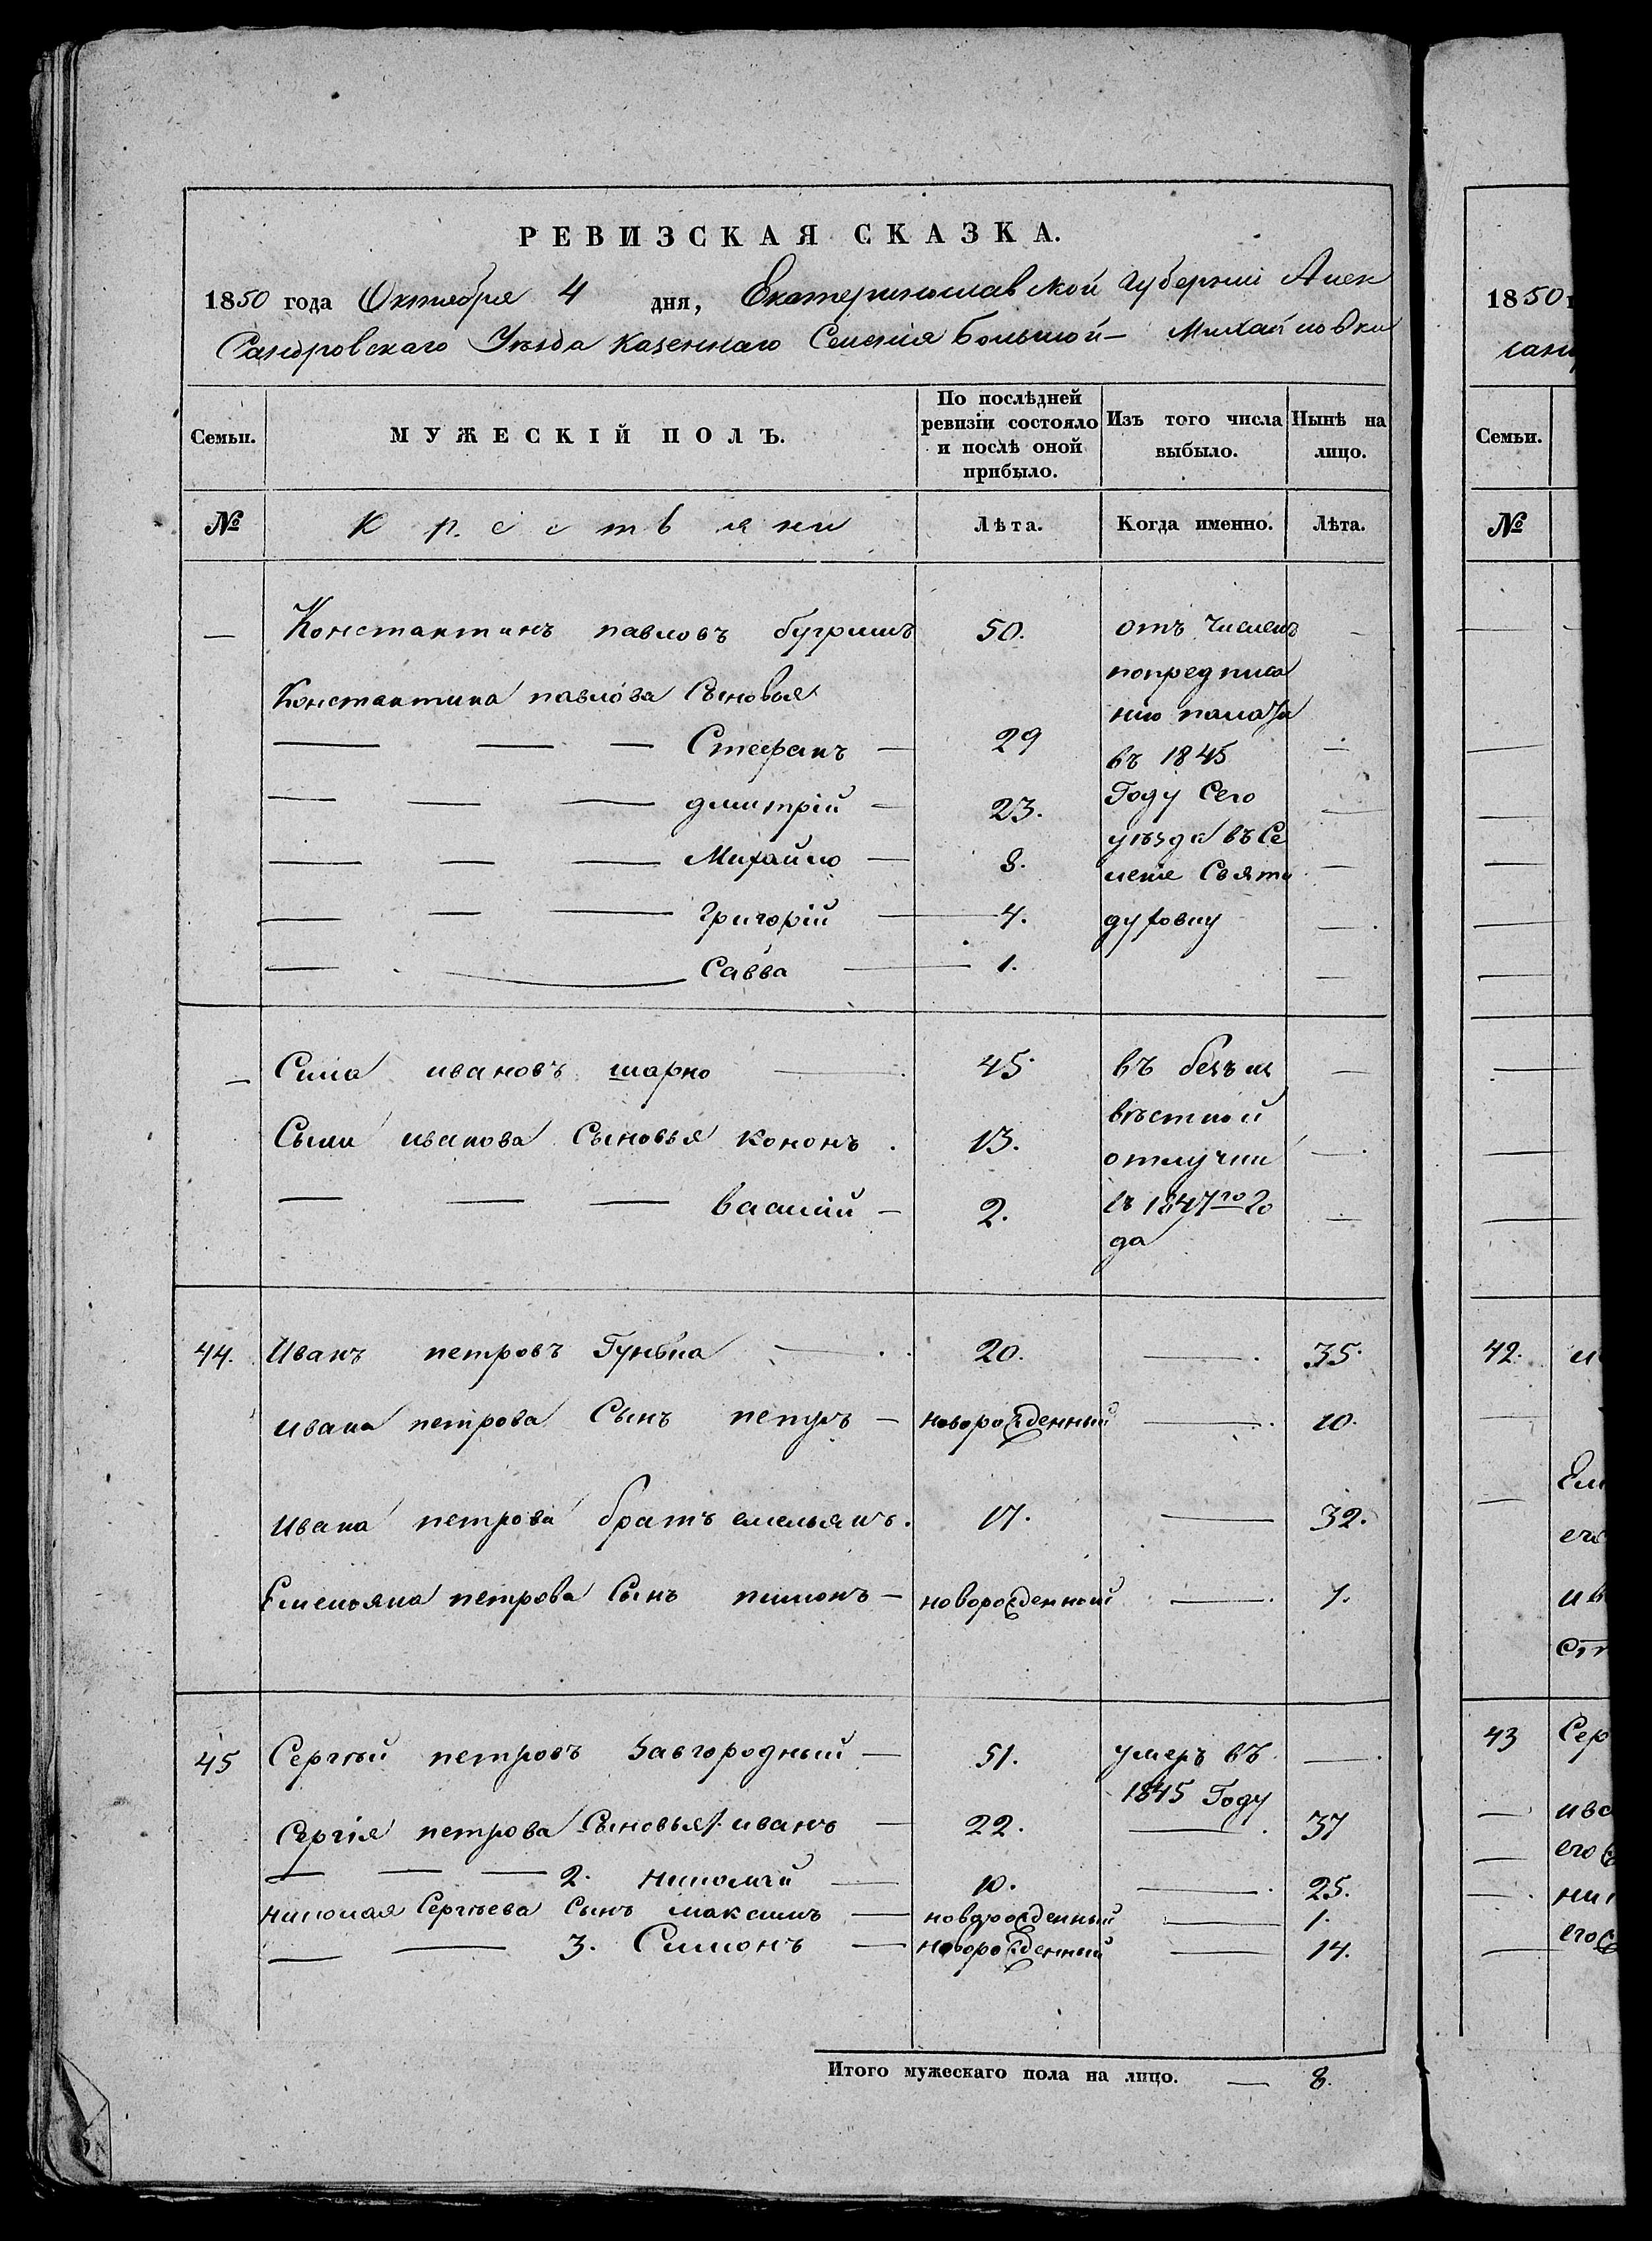 РЕВИЗСКАЯ СКАЗКА.
1850 года Октября 4 дня, Екатеринославской губерніи Алек
Сандровскаго Уѣзда казеннаго Селенія Большой-Михайловки
Семьи.
МУЖЕСКІЙ ПОЛЪ.
По послѣдней ревизіи состояло и послѣ оной прибыло.
Изъ того числа выбыло.
Нынѣ на лицо.
№
Крестьяни
Лѣта.
Когда именно.
Лѣта.
— Константинъ павловъ 50. отъ численъ —
Константина павлова Сыновья попредписа
нію
— — — Стефанъ — 29 въ 1845 —
— — — дмитрій — 23. Году Сего —
— — — Михайло — 8. уѣзда въ Се —
леніе Свято
— — — Григорій — 4. духовку —
— — Савва — 1. —
— Сила ивановъ шарко — 45 въ безъиз —
вѣстной
Силы иванова Сыновья кононъ . 13. отлучки —
— — — василій — 2. съ 1847го го —
да
44. Иванъ петровъ Гунька — 20. — 35.
ивана петрова Сынъ петръ — новорожденный — 10.
ивана петрова братъ емельянъ. 17. — 32.
Емельяна петрова Сынъ пимонъ — новорожденный — 1.
45 Сергѣй петровъ Завгородный — 51. умеръ въ —
1845 Году
Сергія петрова Сыновья 1. иванъ — 22. — 37
— — — 2. николай — 10. — 25.
николая Сергѣева Сынъ максимъ — новорожденный — 1.
— — 3. Симонъ — новорожденный — 14.
Итого мужескаго пола на лицо. — 8.
1850
Семьи.
№
42.
43 Сер